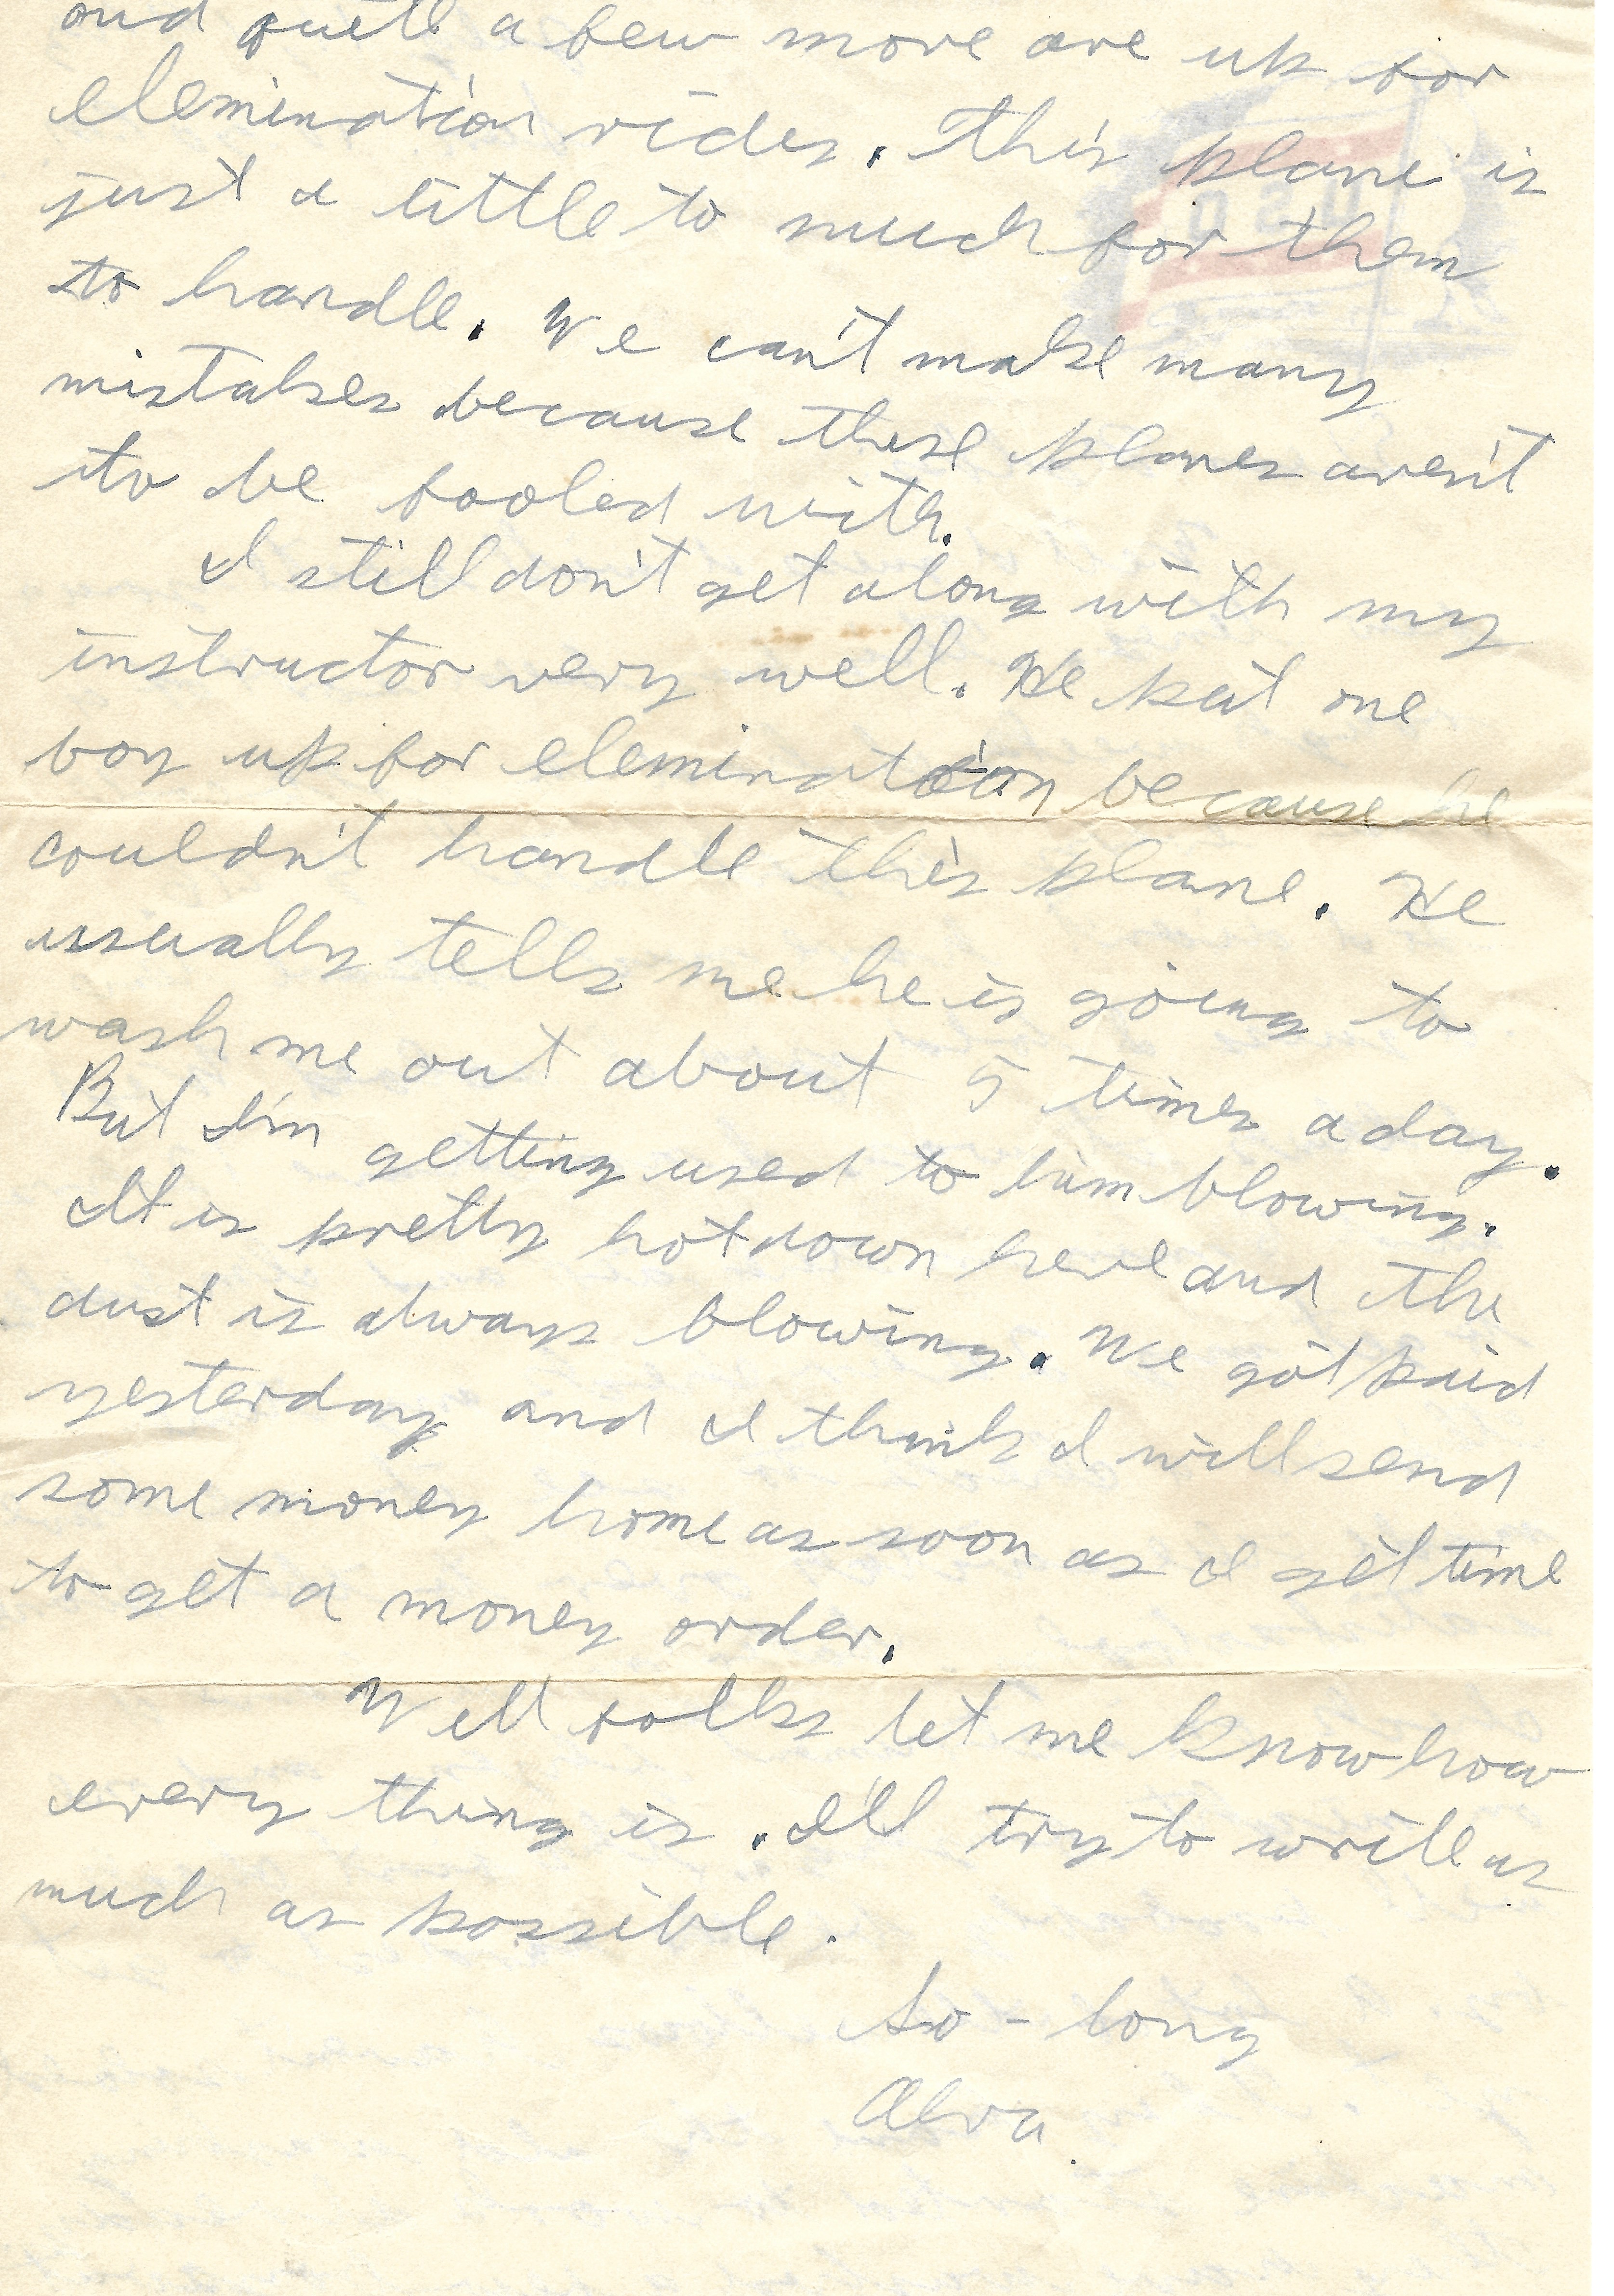 and quite a few more are up for
elemination rides. This plane is
just a little to much for them
to handle. We can't make many
mistakes because these planes aren't
to be fooled with.
I still don't get along with my
instructor very well. He put one
boy up for elemination because he
couldn't handle this plane. He
usually tells me he is going to
wash me out about 5 times a day.
But I'm getting used to him blowing.
It is pretty hot down here and the
dust is always blowing. We got paid
yesterday and I think I will send
some money home as soon as I get time
to get a money order.
Well folks let me know how
every thing is. I'll try to write as
much as possible.
So-long
Alva.